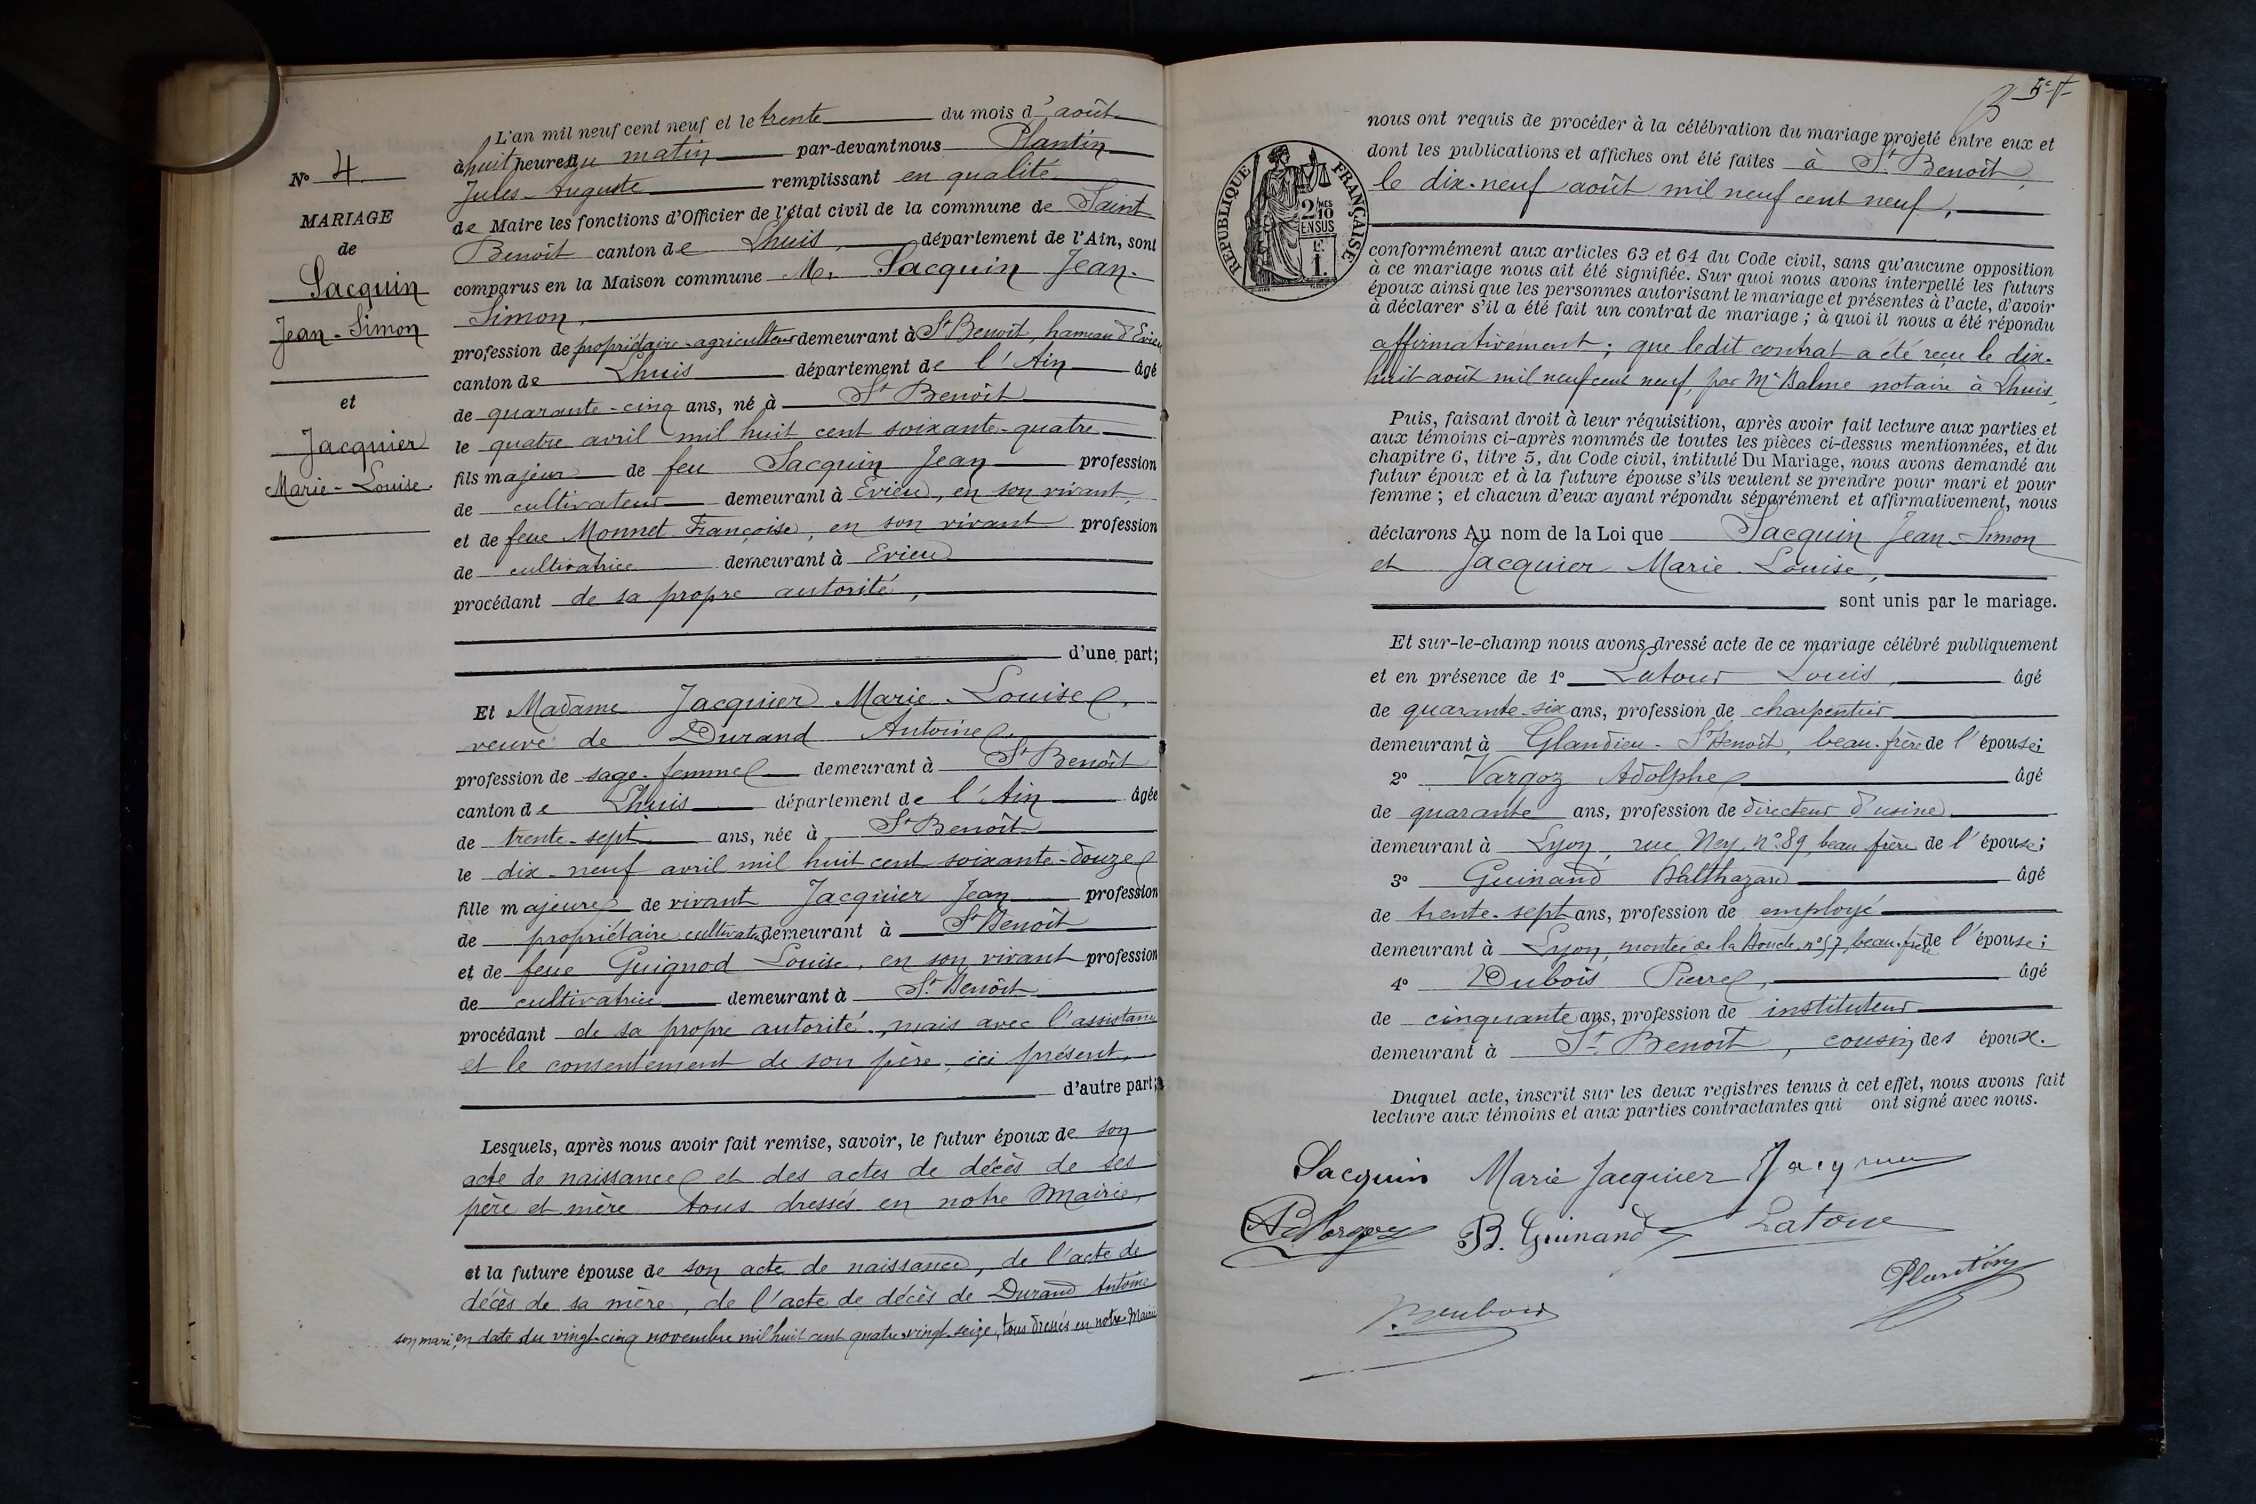 L'an mil neuf cent neuf et le trente du mois d'août
à huit heures du matin par-devant nous Plantin
Jules-Auguste remplissant en qualité
de Maire les fonctions d'Officier de l'état civil de la commune de Saint
Benoît canton de Lhuis, département de l'Ain, sont
comparus en la Maison commune M. Sacquin Jean-
Simon,
profession de propriétaire-agriculteur demeurant à St Benoît, hameau d'Evieu
canton de Lhuis département de l'Ain âgé
de quarante-cinq ans, né à St Benoît
le quatre avril mil huit cent soixante-quatre
fils majeur de feu Sacquin Jean profession
de cultivateur demeurant à Evieu, en son vivant,
et de feue Monnet Françoise, en son vivant profession
de cultivatrice demeurant à Evieu
procédant de sa propre autorité,
d'une part;
Et Madame Jacquier Marie-Louise,
veuve de Durand Antoine,
profession de sage-femme demeurant à St Benoît
canton de Lhuis département de l'Ain âgée
de trente-sept ans, née à St Benoît
le dix-neuf avril mil huit cent soixante-douze
fille majeure de vivant Jacquier Jean profession
de propriétaire cultivateur demeurant à St Benoît
et de feue Guignod Louise, en son vivant profession
de cultivatrice demeurant à St Benoît
procédant de sa propre autorité, mais avec l'assistance
et le consentement de son père, ici présent,
d'autre part;
Lesquels, après nous avoir fait remise, savoir, le futur époux de son
acte de naissance et des actes de décès de ses
père et mère tous dressés en notre Mairie,
et la future épouse de son acte de naissance, de l'acte de
décès de sa mère, de l'acte de décès de Durand Antoine
son mari, en date du vingt-cinq novembre mil huit cent quatre-vingt-seize, tous dressés en notre Mairie
No 4
MARIAGE
de
Sacquin
Jean-Simon
et
Jacquier
Marie-Louise.
RÉPUBLIQUE FRANÇAISE
2/10 MES
EN SUS
1 F.
nous ont requis de procéder à la célébration du mariage projeté entre eux et
dont les publications et affiches ont été faites à St Benoît,
le dix-neuf août mil neuf cent neuf,
conformément aux articles 63 et 64 du Code civil, sans qu'aucune opposition
à ce mariage nous ait été signifiée. Sur quoi nous avons interpellé les futurs
époux ainsi que les personnes autorisant le mariage et présentes à l'acte, d'avoir
à déclarer s'il a été fait un contrat de mariage ; à quoi il nous a été répondu
affirmativement; que ledit contrat a été reçu le dix-
huit août mil neuf cent neuf, par Me Balme notaire à Lhuis,
Puis, faisant droit à leur réquisition, après avoir fait lecture aux parties et
aux témoins ci-après nommés de toutes les pièces ci-dessus mentionnées, et du
chapitre 6, titre 5, du Code civil, intitulé Du Mariage, nous avons demandé au
futur époux et à la future épouse s'ils veulent se prendre pour mari et pour
femme ; et chacun d'eux ayant répondu séparément et affirmativement, nous
déclarons Au nom de la Loi que Sacquin Jean-Simon
et Jacquier Marie-Louise,
sont unis par le mariage.
Et sur-le-champ nous avons dressé acte de ce mariage célébré publiquement
et en présence de 1° Latour Louis, âgé
de quarante-six ans, profession de charpentier
demeurant à Glandieu-St Benoît, beau-frère de l'épouse;
2° Vargoz Adolphe âgé
de quarante ans, profession de directeur d'usine
demeurant à Lyon, rue Ney, n° 89, beau-frère de l'épouse;
3° Guinand Balthazard âgé
de trente-sept ans, profession de employé
demeurant à Lyon, montée de la Boucle, n° 57, beau-frère de l'épouse;
4° Dubois Pierre, âgé
de cinquante ans, profession de instituteur
demeurant à St Benoît, cousin des époux.
Duquel acte, inscrit sur les deux registres tenus à cet effet, nous avons fait
lecture aux témoins et aux parties contractantes qui ont signé avec nous.
Sacquin Marie Jacquier Jacquier
B. Guinand Latour
Plantin
P. Dubois